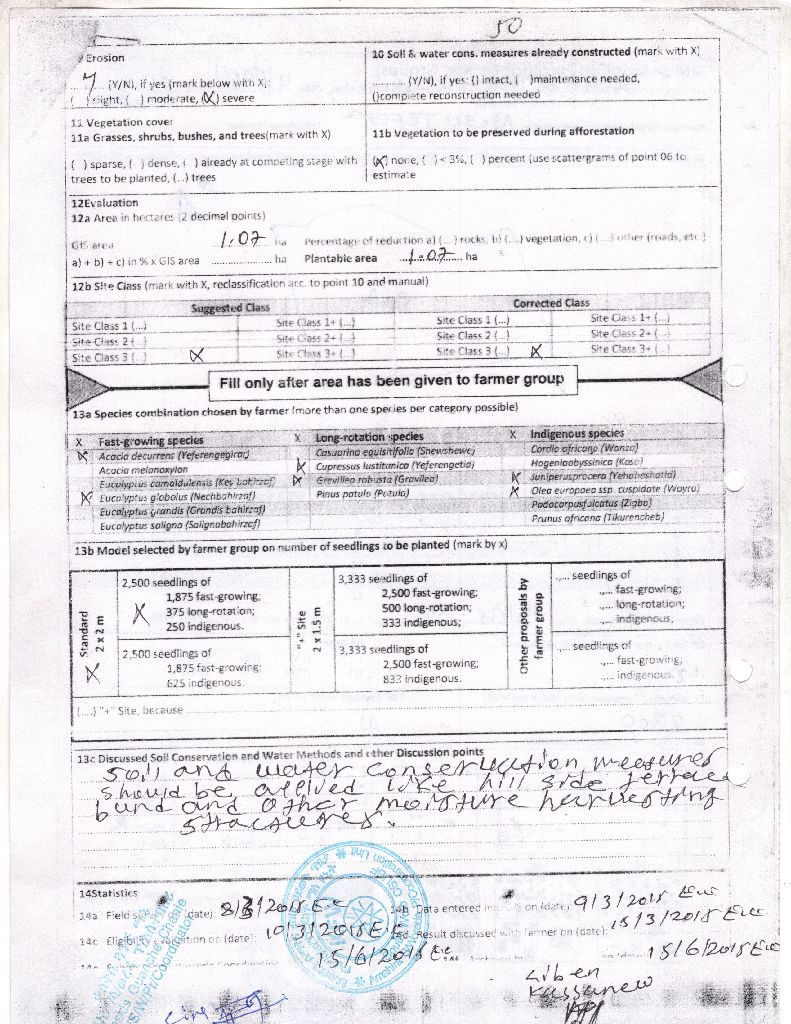 50
9 Erosion
Y (Y/N), if yes (mark below with X):
( ) slight, ( ) moderate, (X) severe
10 Soil & water cons. measures already constructed (mark with X)
........... (Y/N), if yes: () intact, ( )maintenance needed,
()complete reconstruction needed
11 Vegetation cover
11a Grasses, shrubs, bushes, and trees(mark with X)
( ) sparse, ( ) dense, ( ) already at competing stage with
trees to be planted, (...) trees
11b Vegetation to be preserved during afforestation
(X) none, ( ) < 3%, ( ) percent (use scattergrams of point 06 to
estimate
12Evaluation
12a Area in hectares (2 decimal points)
GIS area 1.07 ha Percentage of reduction a) (....) rocks, b) (...) vegetation, c) (...) other (roads, etc.)
a) + b) + c) in % x GIS area .................... ha Plantable area ...1.07... ha
12b Site Class (mark with X, reclassification acc. to point 10 and manual)
Suggested Class Corrected Class
Site Class 1 (...) Site Class 1+ (...) Site Class 1 (...) Site Class 1+ (...)
Site Class 2 (...) Site Class 2+ (...) Site Class 2 (...) Site Class 2+ (...)
Site Class 3 (...) X Site Class 3+ (...) Site Class 3 (...) X Site Class 3+ (...)
Fill only after area has been given to farmer group
13a Species combination chosen by farmer (more than one species per category possible)
X Fast-growing species X Long-rotation species X Indigenous species
X Acacia decurrens (Yeferengegirar) Casuarina equisitifolia (Shewshewe) Cordia africana (Wanza)
Acacia melanoxylon X Cupressus lustitanica (Yeferengetid) Hogeniaabyssinica (Kaso)
Eucalyptus camaldulensis (Key bahirzaf) X Grevillea robusta (Gravilea) X Juniperusprocera (Yehabeshatid)
X Eucalyptus globolus (Nechbahirzaf) Pinus patula (Patula) X Olea europaea ssp. cuspidate (Wayra)
Eucalyptus grandis (Grandis bahirzaf) Podocarpusfalcatus (Zigba)
Eucalyptus saligna (Salignabahirzaf) Prunus africana (Tikurencheb)
13b Model selected by farmer group on number of seedlings to be planted (mark by x)
Standard
2 x 2 m
X
2,500 seedlings of
1,875 fast-growing;
X 375 long-rotation;
250 indigenous.
2,500 seedlings of
1,875 fast-growing;
625 indigenous.
"+" Site
2 x 1.5 m
3,333 seedlings of
2,500 fast-growing;
500 long-rotation;
333 indigenous;
3,333 seedlings of
2,500 fast-growing;
833 indigenous.
Other proposals by
farmer group
..... seedlings of
..... fast-growing;
..... long-rotation;
..... indigenous;
..... seedlings of
..... fast-growing;
..... indigenous.
(....) "+" Site, because
13c Discussed Soil Conservation and Water Methods and other Discussion points
Soil and water conservation measures
should be applied like hill side terrace
bund and other moisture harvesting
structures.
14Statistics
14a Field (date): 8/3/2015 E.C 14b Data entered on (date): 9/3/2015 E.C
14c Eligibility evaluation on (date): 10/3/2015 E.C Result discussed with farmer on (date): 15/3/2015 E.C
15/6/2015 E.C 15/6/2015 E.C
Kassanew